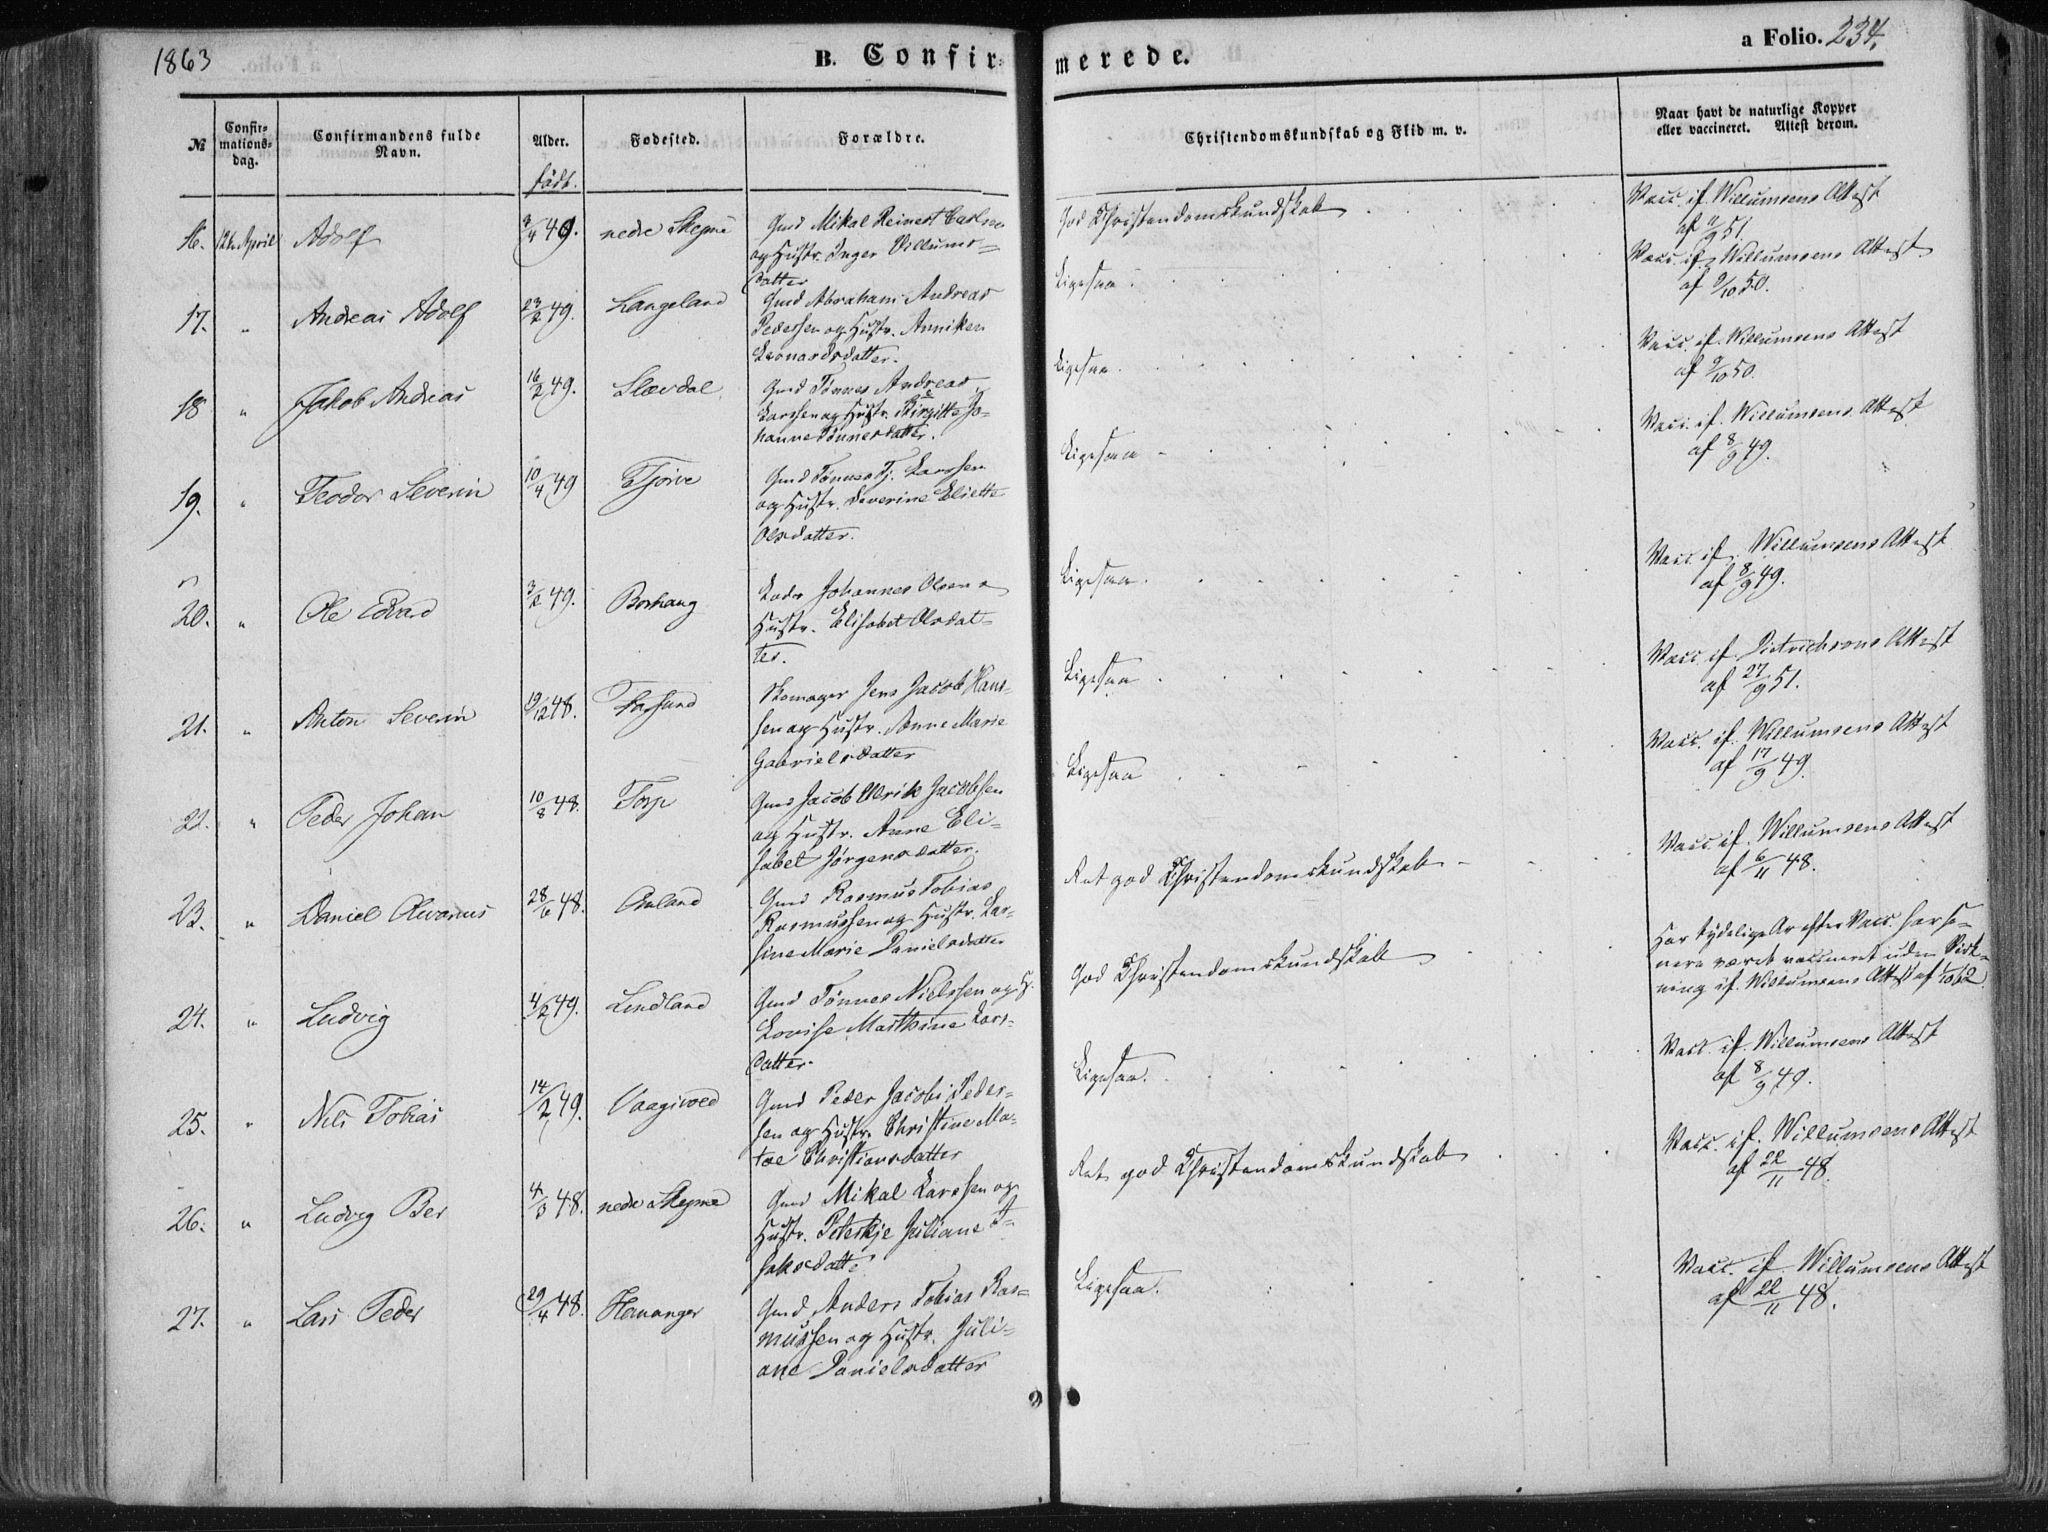 1863
B. Confir-
merede.
a Folio. 234.
№
Confir-
mations-
dag.
Confirmandens fulde
Navn.
Alder.
født.
Fødested.
Forældre.
Christendomskundskab og Flid m. v.
Naar havt de naturlige Kopper
eller vaccineret. Attest derom.
16. 12te April Adolf 3/4 49. nedre Skeime
Gmd Mikal Reinert Carlsen
og Hustr. Inger Villums-
datter
God Christendomskundskab
Vacc. if. Willumsens Attest
af 9/9 51.
17. " Andreas Adolf 23/2 49. Langeland
Gmd Abraham Andreas
Pedersen og Hustr. Anniken
Leonardsdatter.
Ligesaa
Vacc. if. Willumsens Attest
af 9/10 50.
18 " Jakob Andreas 16/2 49. Slævdal
Gmd Tønnes Andreas
Larssen og Hustr. Birgitte Jo-
hanne Tønnesdatter.
Ligesaa
Vacc. if. Willumsens Attest
af 9/10 50.
19. " Teodor Severin 10/4 49 Tjørve
Gmd Tønnes Tj. Larssen
og Hustr. Severine Eliette
Olsdatter.
Ligesaa
Vacc. if. Willumsens Attest
af 8/9 49.
20. " Ole Edvard 3/2 49. Borhaug
Lods Johannes Olsen o
Hustr. Elisabet Olsdat-
ter.
Ligesaa
Vacc. if. Willumsens Attest
af 8/9 49.
21. " Anton Severin 19/12 48. Farsund
Skomager Jens Jacob Hans-
sen og Hustr. Anne Marie
Gabrielsdatter
Ligesaa
Vacc. if. Dietrichsons Attest
af 27/9 51.
22. " Peder Johan 10/8 48. Torp
Gmd Jacob Ulrik Jacobsen
og Hustr. Anne Eli-
sabet Jørgensdatter.
Ligesaa
Vacc. if. Willumsens Attest
af 17/9 49.
23. " Daniel Olvarius 28/6 48. Ouland
Gmd Rasmus Tobias
Rasmussen og Hustr. Lar-
sine Marie Danielsdatter
Ret god Christendomskundskab
Vacc. if. Willumsens Attest
af 6/11 48.
24. " Ludvig 4/2 49. Lindland
Gmd Tønnes Nielssen og H.
Lovise Marthine Lars-
datter.
God Christendomskundskab
Har tydelige Ar efter Vacc. har se-
nere været vaccineret uden Virk-
ning if. Willumsens Attest af 1/10 62.
25. " Nils Tobias 14/2 49. Vaagsvold
Gmd Peder Jacobi Peder-
sen og Hustr. Christine Ma-
tæ Christiansdatter
Ligesaa.
Vacc. if. Willumsens Attest
af 8/9 49.
26. " Ludvig Ber 4/3 48. nedre Skeime
Gmd Mikal Larssen og
Hustr. Peterkje Juliane I-
saksdatte
Ret god Christendomskundskab
Vacc. if. Willumsens Attest
af 22/11 48.
27. " Lars Peder 29/4 48. Hananger
Gmd Anders Tobias Ras-
mussen og Hustr. Juli-
ane Danielsdatter
Ligesaa.
Vacc. if. Willumsens Attest
af 22/11 48.